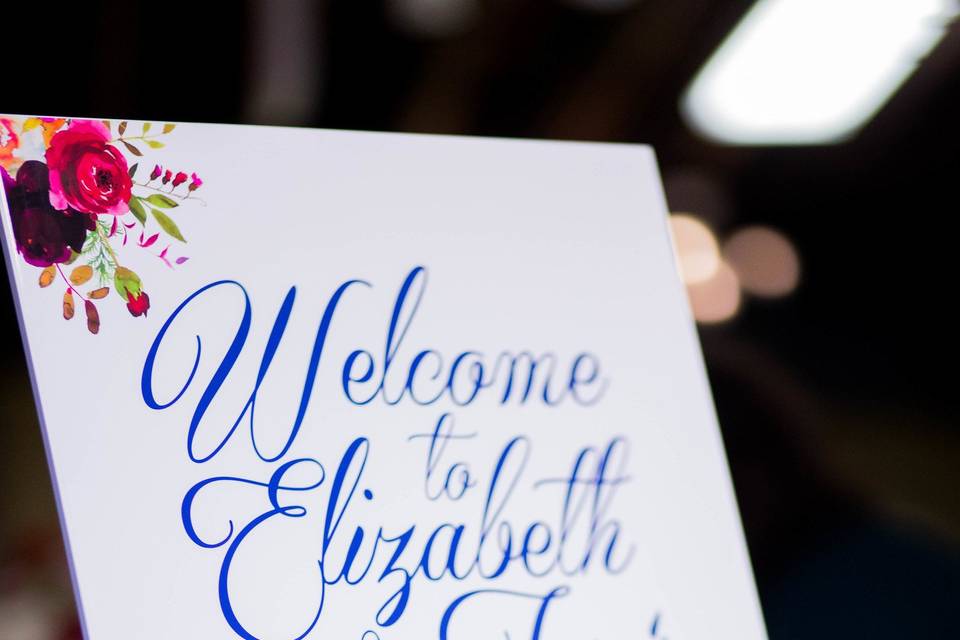 Welcome
to
Elizabeth